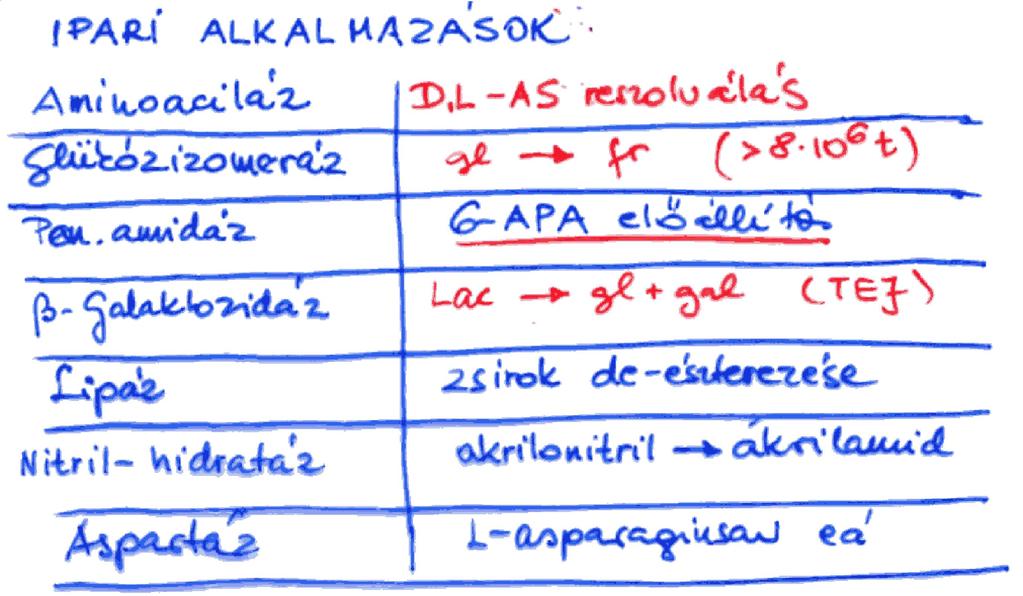 IPARI ALKALMAZÁSOK:
Aminoaciláz D,L-AS reszolválás
Glükózizomeráz gl → fr (>8·10⁶ t)
Pen. amidáz 6-APA előállítás
β-Galaktozidáz Lac → gl + gal (TEJ)
Lipáz zsirok de-észterezése
Nitril-hidratáz akrilonitril → akrilamid
Aspartáz L-asparaginsav eá